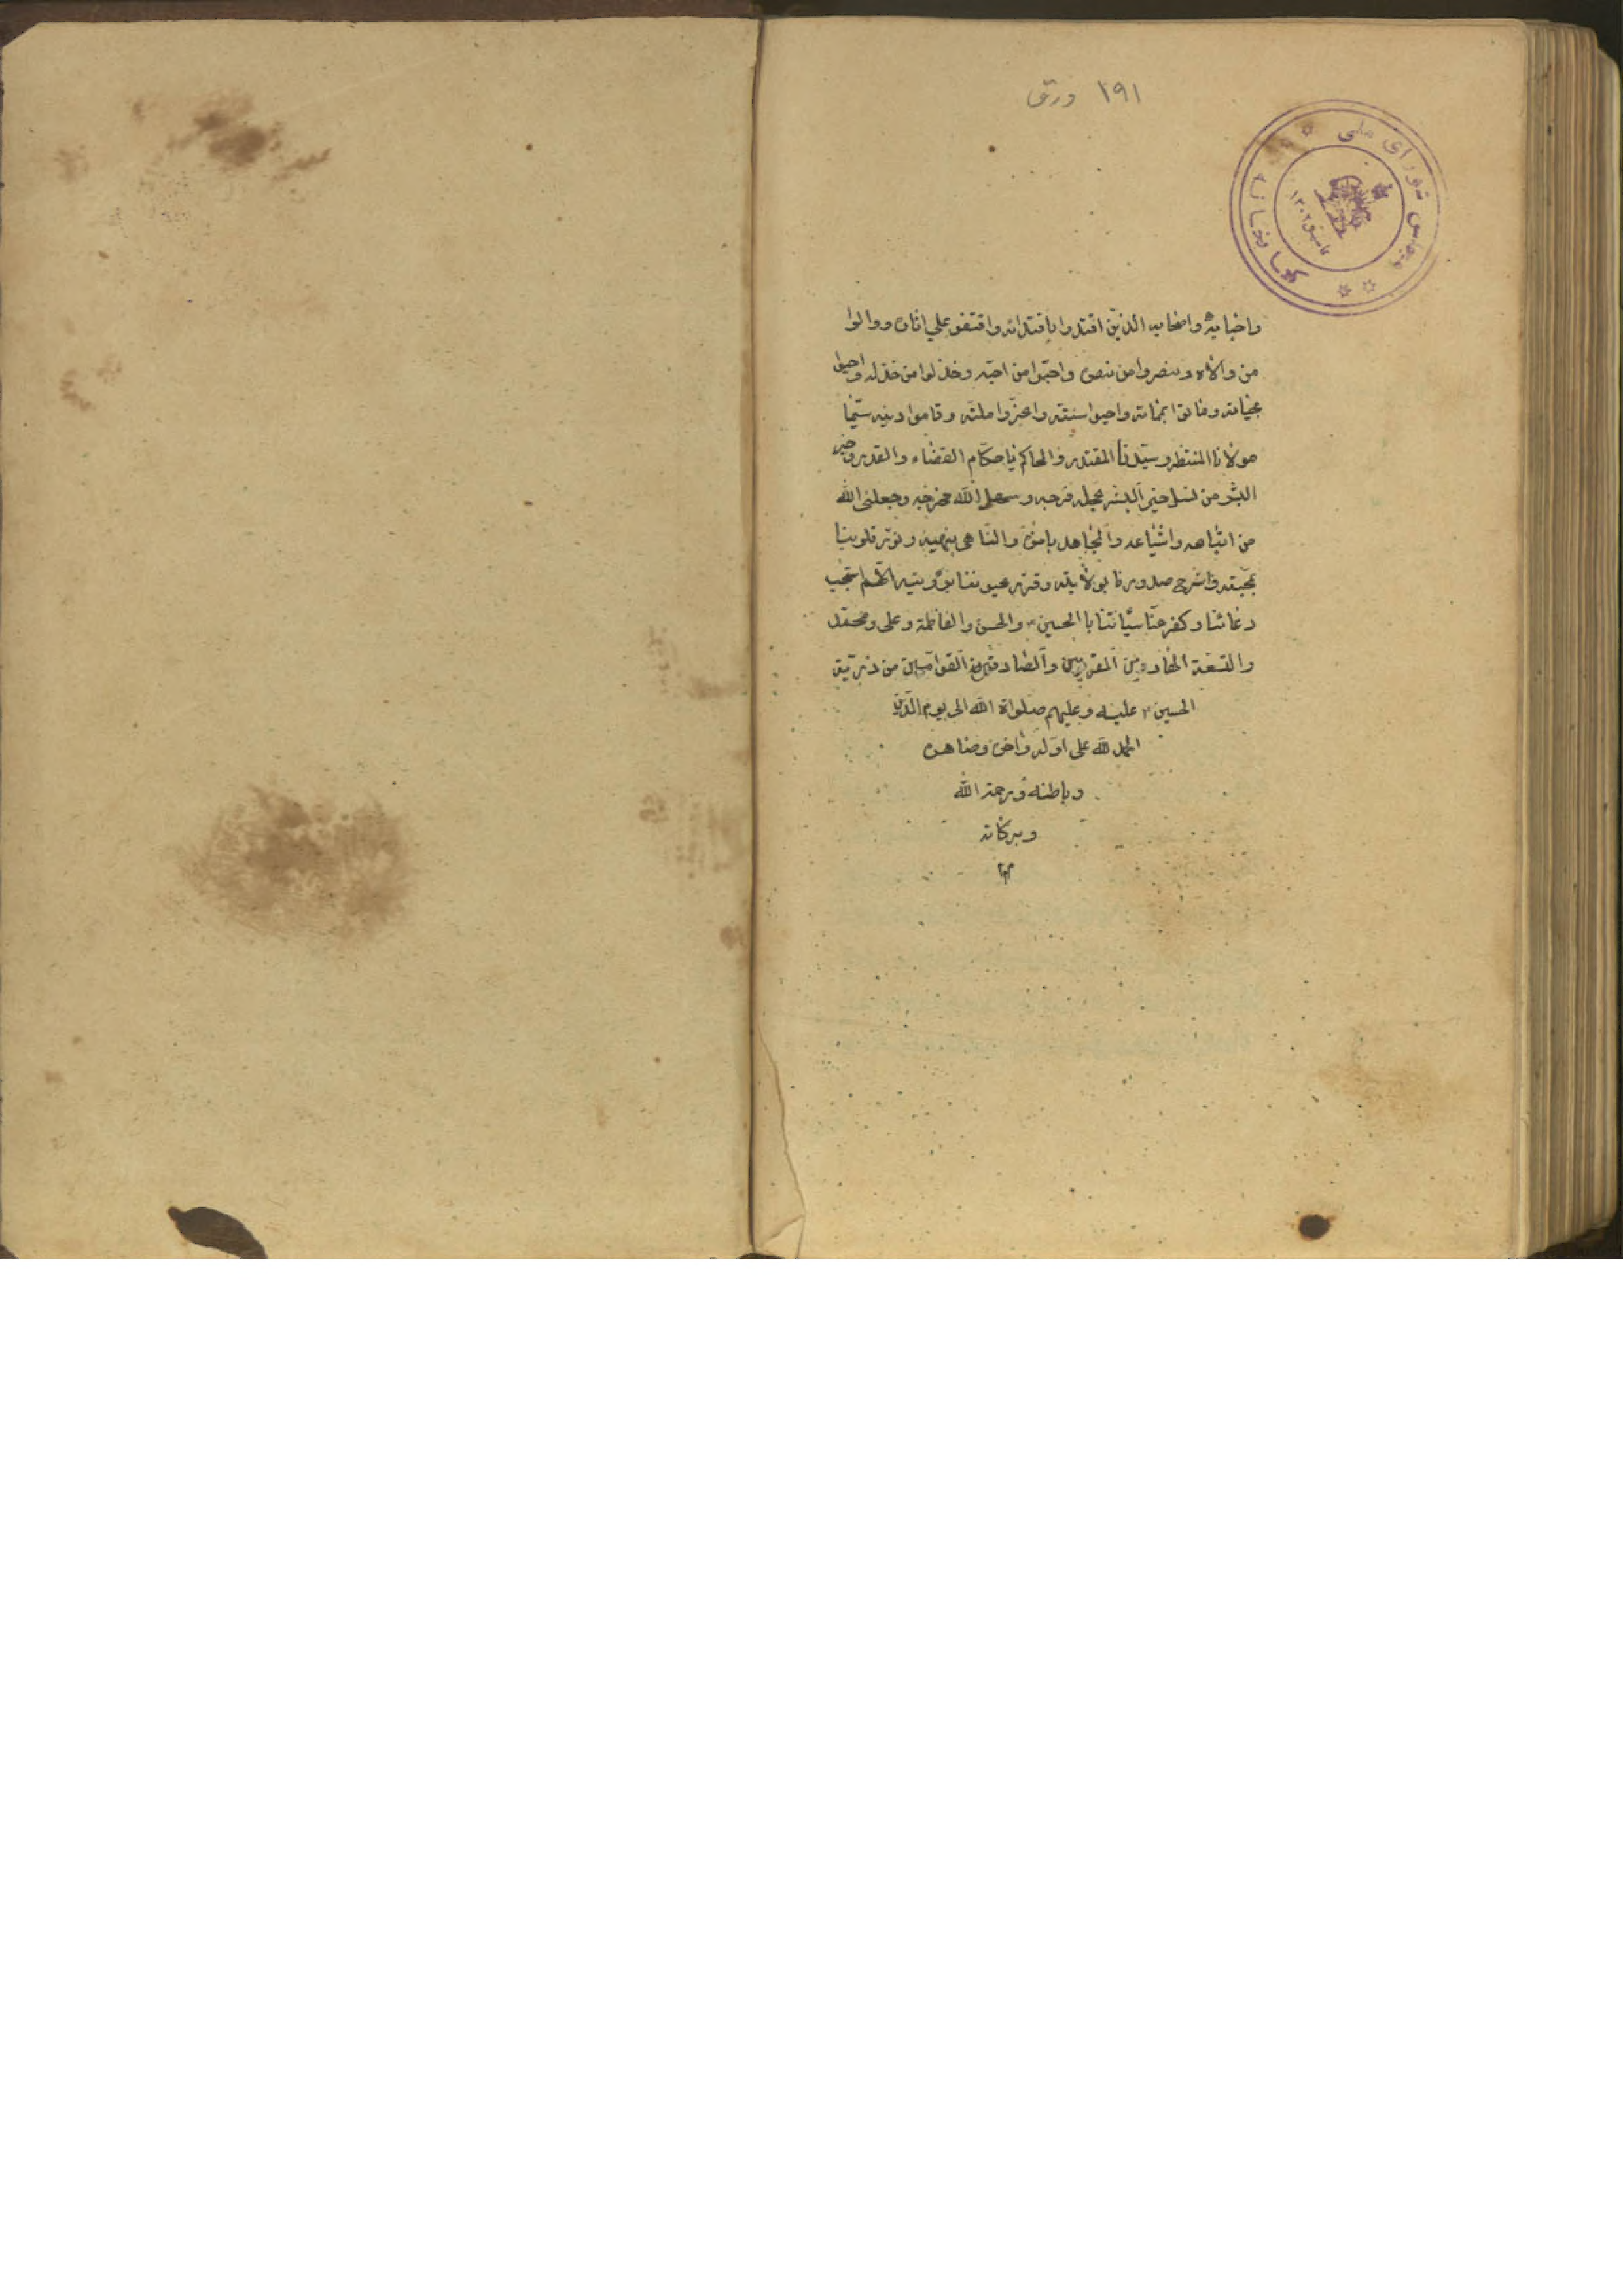 ۱۹۱ ورق
کتابخانه مجلس شورای ملی
تاسیس ۱۳۰۲
واحبابه واصحابه الذین اقتدوا باقتدائه واقتفو علی اثاره ووالوا
من والاه و ینصروا من نصره واحبّوا من احبّه وخذلوا من خذله واحیوا
بحیاته وماتوا بمماته واحیوا سنته واعزّوا ملته وقاموا دینه سیّما
مولانا المنتظر وسیّدنا المقتدر والحاکم باحکام القضاء والقدر وخیر
البشر من نسل خیر البشر عجل فرجه وسهل الله مخرجه وجعلنی الله
من اتباعه واشیاعه والمجاهد بامره والناهی بنهیه ونوّر قلوبنا
بمحبّته واشرح صدورنا بولایته وقرّر عیوننا برؤیته اللّهم استجب
دعائنا وکفر عنّا سیّئاتنا باالحسین والحسن والفاطمة وعلی ومحمّد
والتسعة الهادین المقربین والصادقین القوامین من ذرّیة
الحسین علیه وعلیهم صلواة الله الی یوم الدّین
الحمد لله علی اوّله واخره وضاهره
وباطنه ورحمة الله
وبرکاته